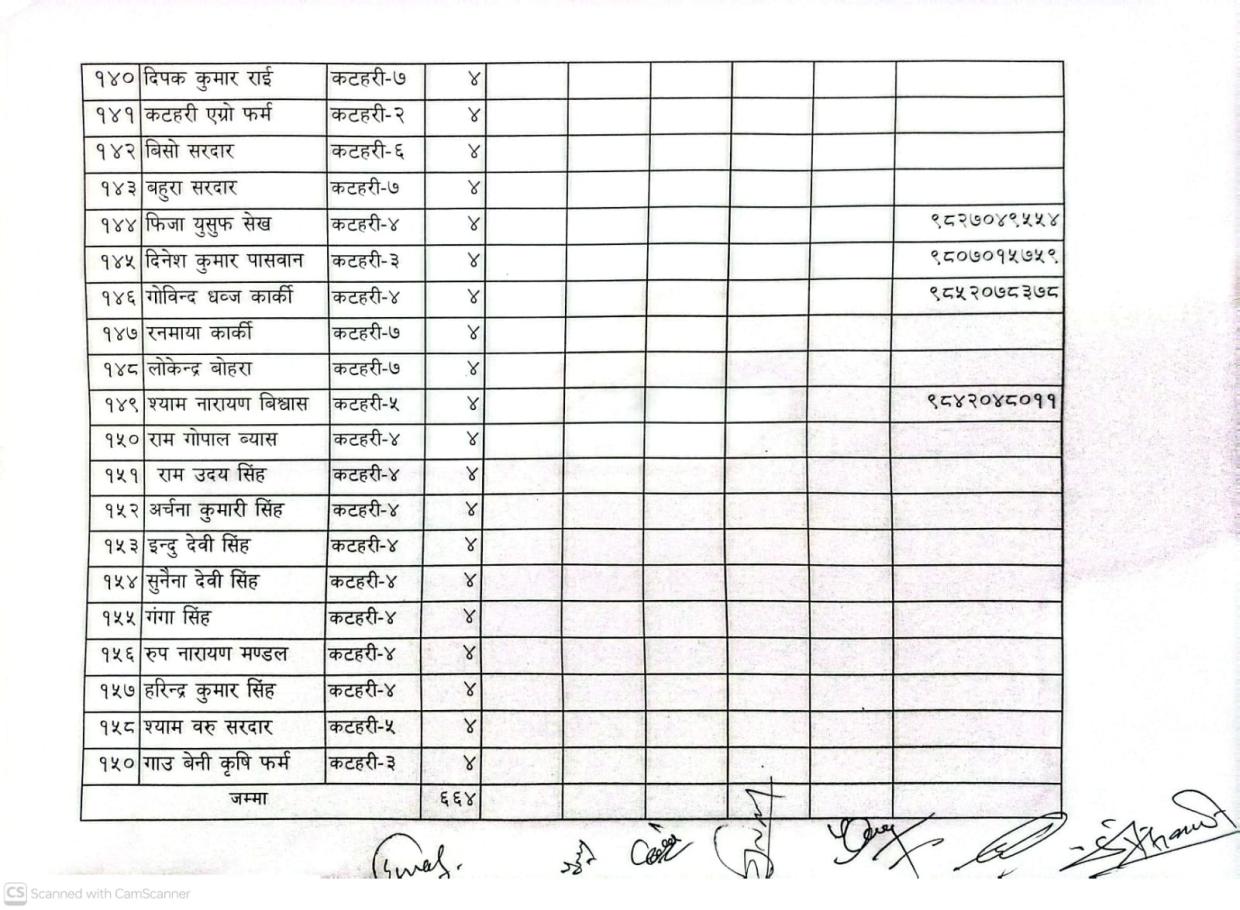 १४० दिपक कुमार राई कटहरी-७ ४
१४१ कटहरी एग्रो फर्म कटहरी-२ ४
१४२ बिसो सरदार कटहरी-६ ४
१४३ बहुरा सरदार कटहरी-७ ४
१४४ फिजा युसुफ सेख कटहरी-४ ४ ९८२७०४९५५४
१४५ दिनेश कुमार पासवान कटहरी-३ ४ ९८०७०१५७५९
१४६ गोविन्द धव्ज कार्की कटहरी-४ ४ ९८५२०७८३७८
१४७ रनमाया कार्की कटहरी-७ ४
१४८ लोकेन्द्र बोहरा कटहरी-७ ४
१४९ श्याम नारायण बिश्वास कटहरी-५ ४ ९८४२०४८०११
१५० राम गोपाल ब्यास कटहरी-४ ४
१५१ राम उदय सिंह कटहरी-४ ४
१५२ अर्चना कुमारी सिंह कटहरी-४ ४
१५३ इन्दु देवी सिंह कटहरी-४ ४
१५४ सुनैना देवी सिंह कटहरी-४ ४
१५५ गंगा सिंह कटहरी-४ ४
१५६ रुप नारायण मण्डल कटहरी-४ ४
१५७ हरिन्द्र कुमार सिंह कटहरी-४ ४
१५८ श्याम वरु सरदार कटहरी-५ ४
१५० गाउ बेनी कृषि फर्म कटहरी-३ ४
जम्मा ६६४
CS Scanned with CamScanner